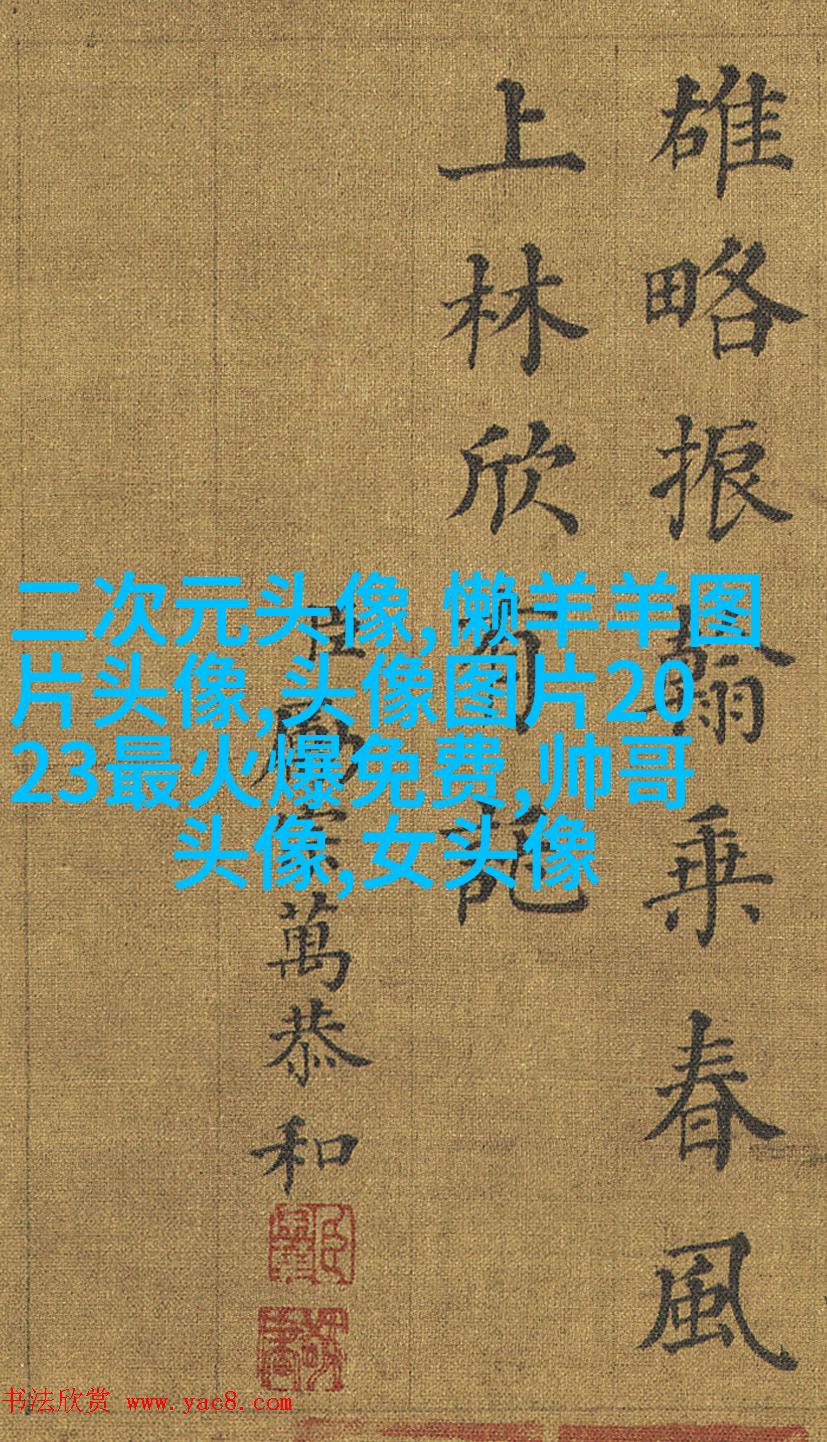 雄略振翰乘春風
上林欣有託
萬恭和
二次元头像,懒羊羊图
片头像,头像图片20
23最火爆免费,帅哥
头像,女头像
书法欣赏 www.yac8.com